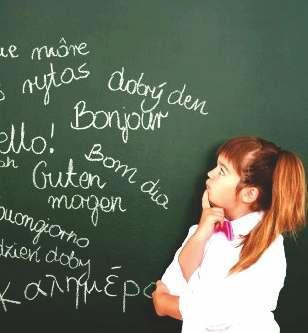 ie môre
s rytas
dobrý den
Bonjour
ello!
Bom dia
Guten
morgen
buongiorno
dzień doby
Καλημέρα